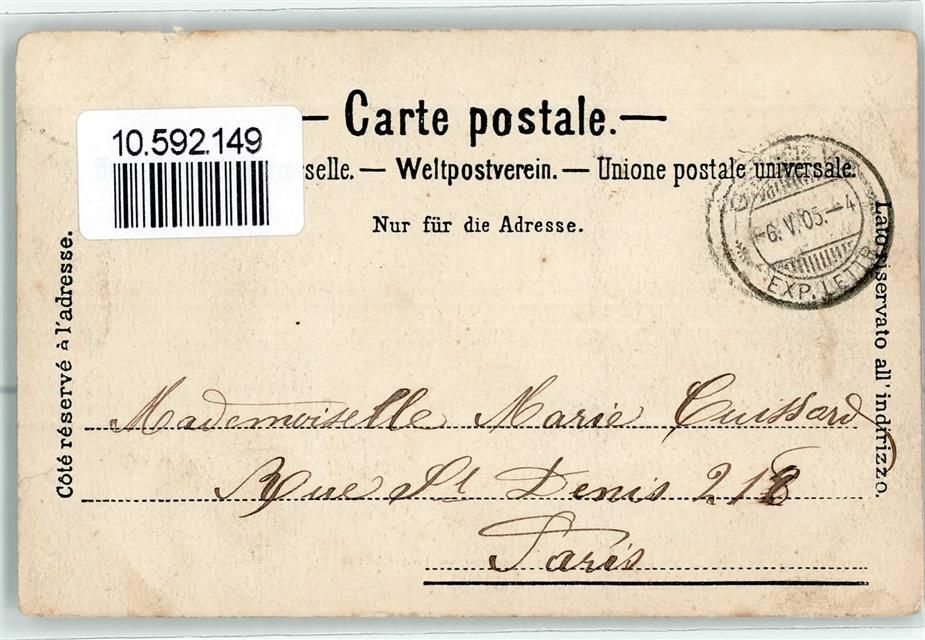 Carte postale.
10.592.149
sselle. — Weltpostverein. — Unione postale universale.
Nur für die Adresse.
-6.V.05.-4
EXP. LETTR.
Côté réservé à l'adresse.
Lato riservato all'indirizzo.
Mademoiselle Marie Cuissard
Rue St Denis 218
Paris